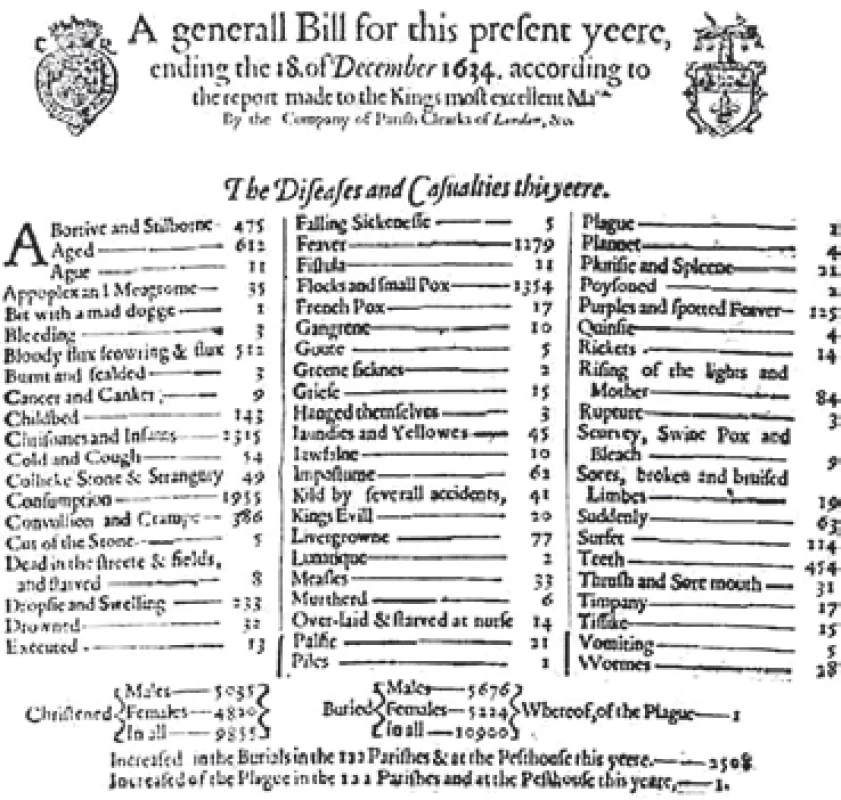 A generall Bill for this preſent yeere,
ending the 18. of December 1634. according to
the report made to the Kings moſt excellent Ma
By the Company of Pariſh Clearks of London, &c.
The Diſeaſes and Caſualties this yeere.
ABortive and Stilborne 475
Aged 612
Ague 11
Appoplex and Meagrome 35
Bit with a mad dogge 1
Bleeding 3
Bloody flux ſcowring & flux 512
Burnt and ſcalded 3
Cancer and Canker 9
Childbed 143
Chriſomes and Infants 2315
Cold and Cough 54
Collicke Stone & Strangury 49
Conſumption 1955
Convulſion and Crampe 386
Cut of the Stone 5
Dead in the ſtreete & fields,
and ſtarved 8
Dropſie and Swelling 233
Drowned 32
Executed 13
Falling Sickeneſſe 5
Feaver 1279
Fiſtula 11
Flocks and ſmall Pox 1354
French Pox 17
Gangrene 10
Goute 5
Greene ſicknes 2
Griefe 15
Hanged themſelves 3
Iaundies and Yellowes 45
Iawfalne 10
Impoſtume 62
Kild by ſeverall accidents, 41
Kings Evill 20
Livergrowne 77
Lunatique 2
Meaſles 33
Murtherd 6
Over-laid & ſtarved at nurſe 14
Palſie 21
Piles 1
Plague 1
Plannet 4
Pluriſie and Spleene 21
Poyſoned 2
Purples and ſpotted Feaver 125
Quinſie 4
Rickets 14
Riſing of the lights and
Mother 84
Rupture 3
Scurvey, Swine Pox and
Bleach 9
Sores, broken and bruiſed
Limbes 19
Suddenly 63
Surfet 114
Teeth 454
Thruſh and Sore mouth 31
Timpany 17
Tiſſike 15
Vomiting 5
Wormes 28
Chriſtened
Males 5035
Females 4820
In all 9855
Buried
Males 5676
Females 5224
In all 10900
Whereof, of the Plague 1
Increaſed in the Burials in the 122 Pariſhes & at the Peſthouſe this yeere. 2508
Increaſed of the Plague in the 122 Pariſhes and at the Peſthouſe this yeare, 1.